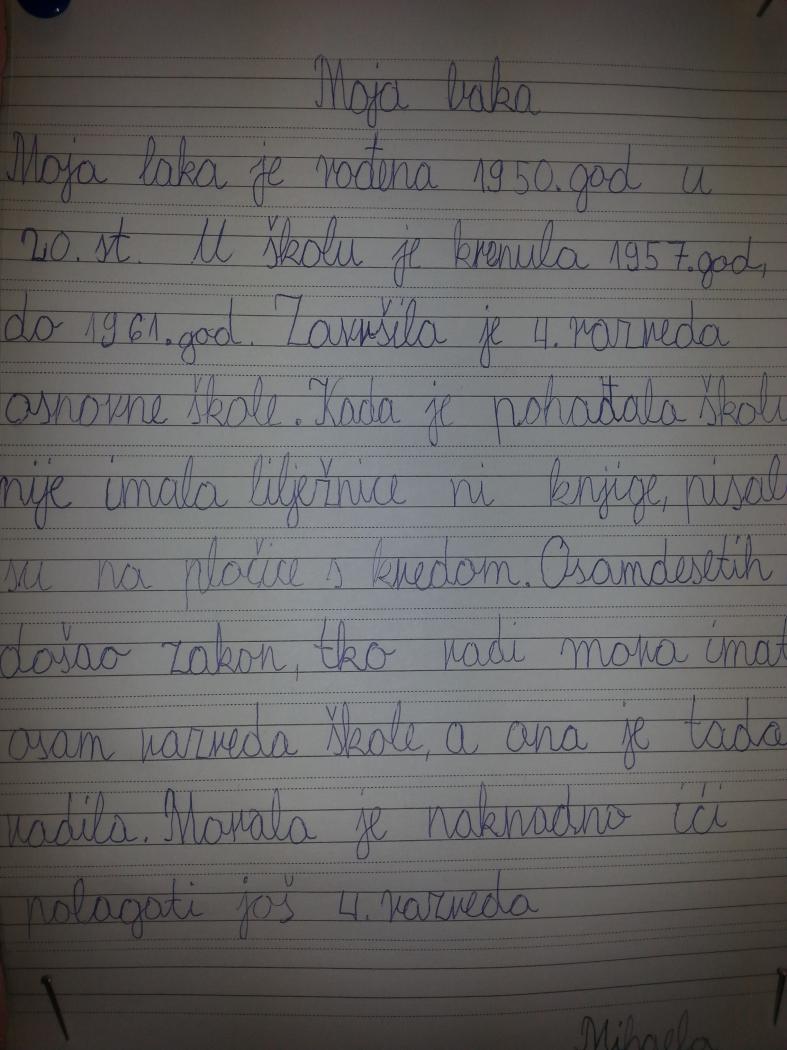 Moja baka
Moja baka je rođena 1950. god u
20. st. U školu je krenula 1957. god,
do 1961. god. Završila je 4. razreda
osnovne škole. Kada je pohađala školu
nije imala bilježnice ni knjige, pisal
su na pločice s kredom. Osamdesetih
došao zakon, tko radi mora imat
osam razreda škole, a ona je tada
radila. Morala je naknadno ići
polagati još 4. razreda
Mihaela